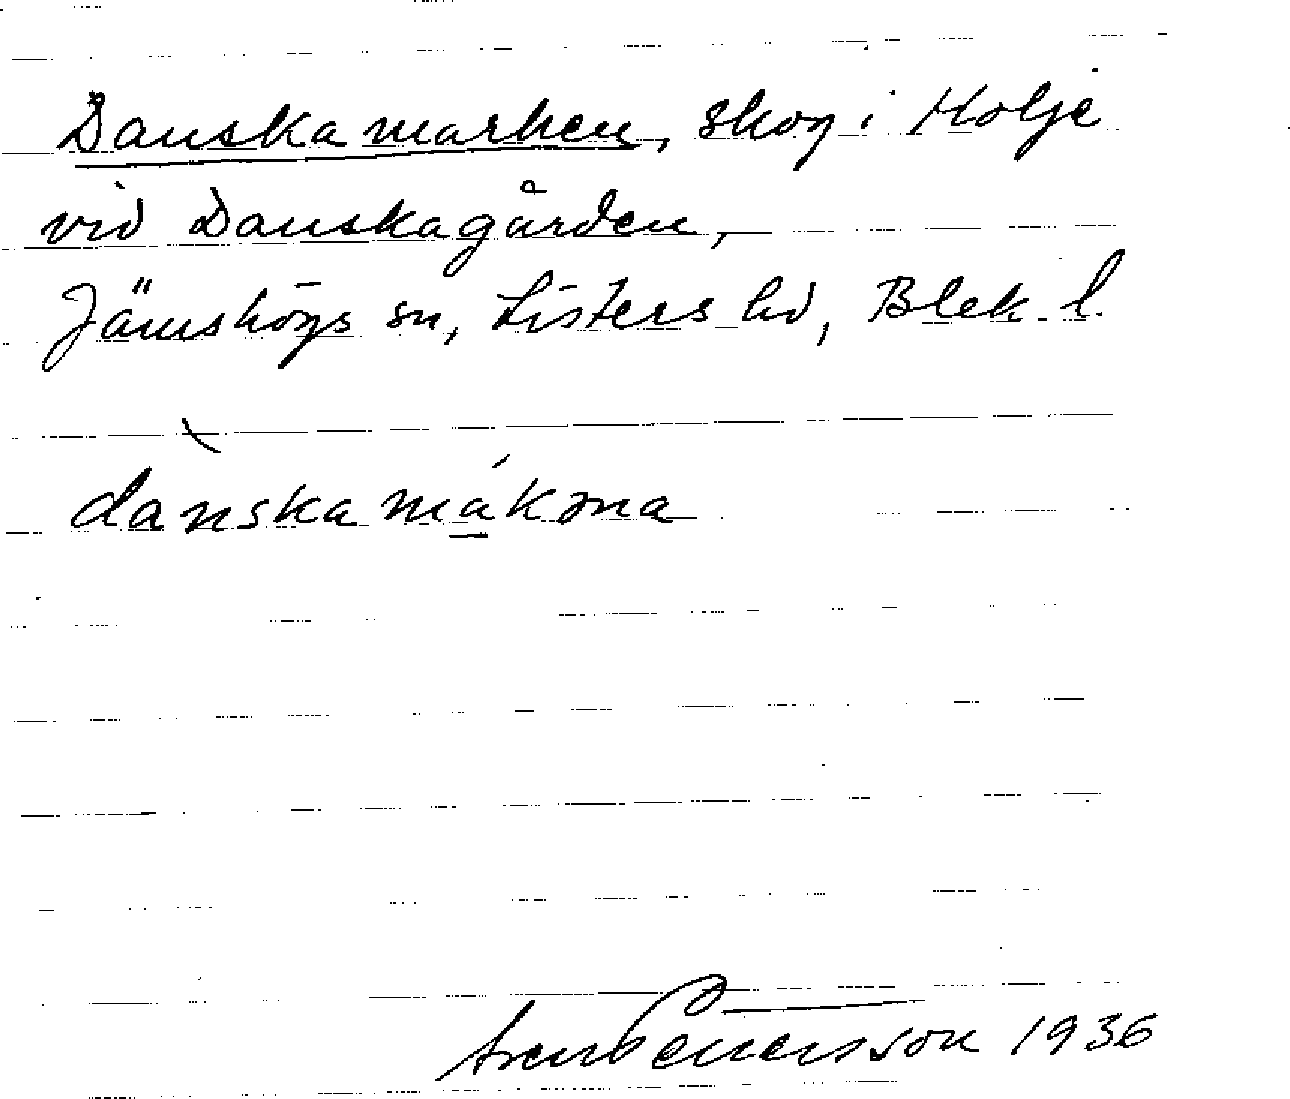 Danskamarken, skog i Holje
vid Danskagården,
Jämshögs sn, Listers hd, Blek. l.
dànskamákəna
Pettersson 1936